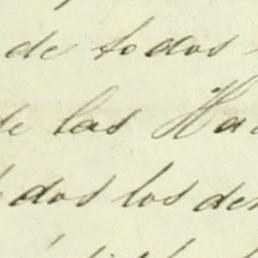 de todos
de las Ha
dos los de